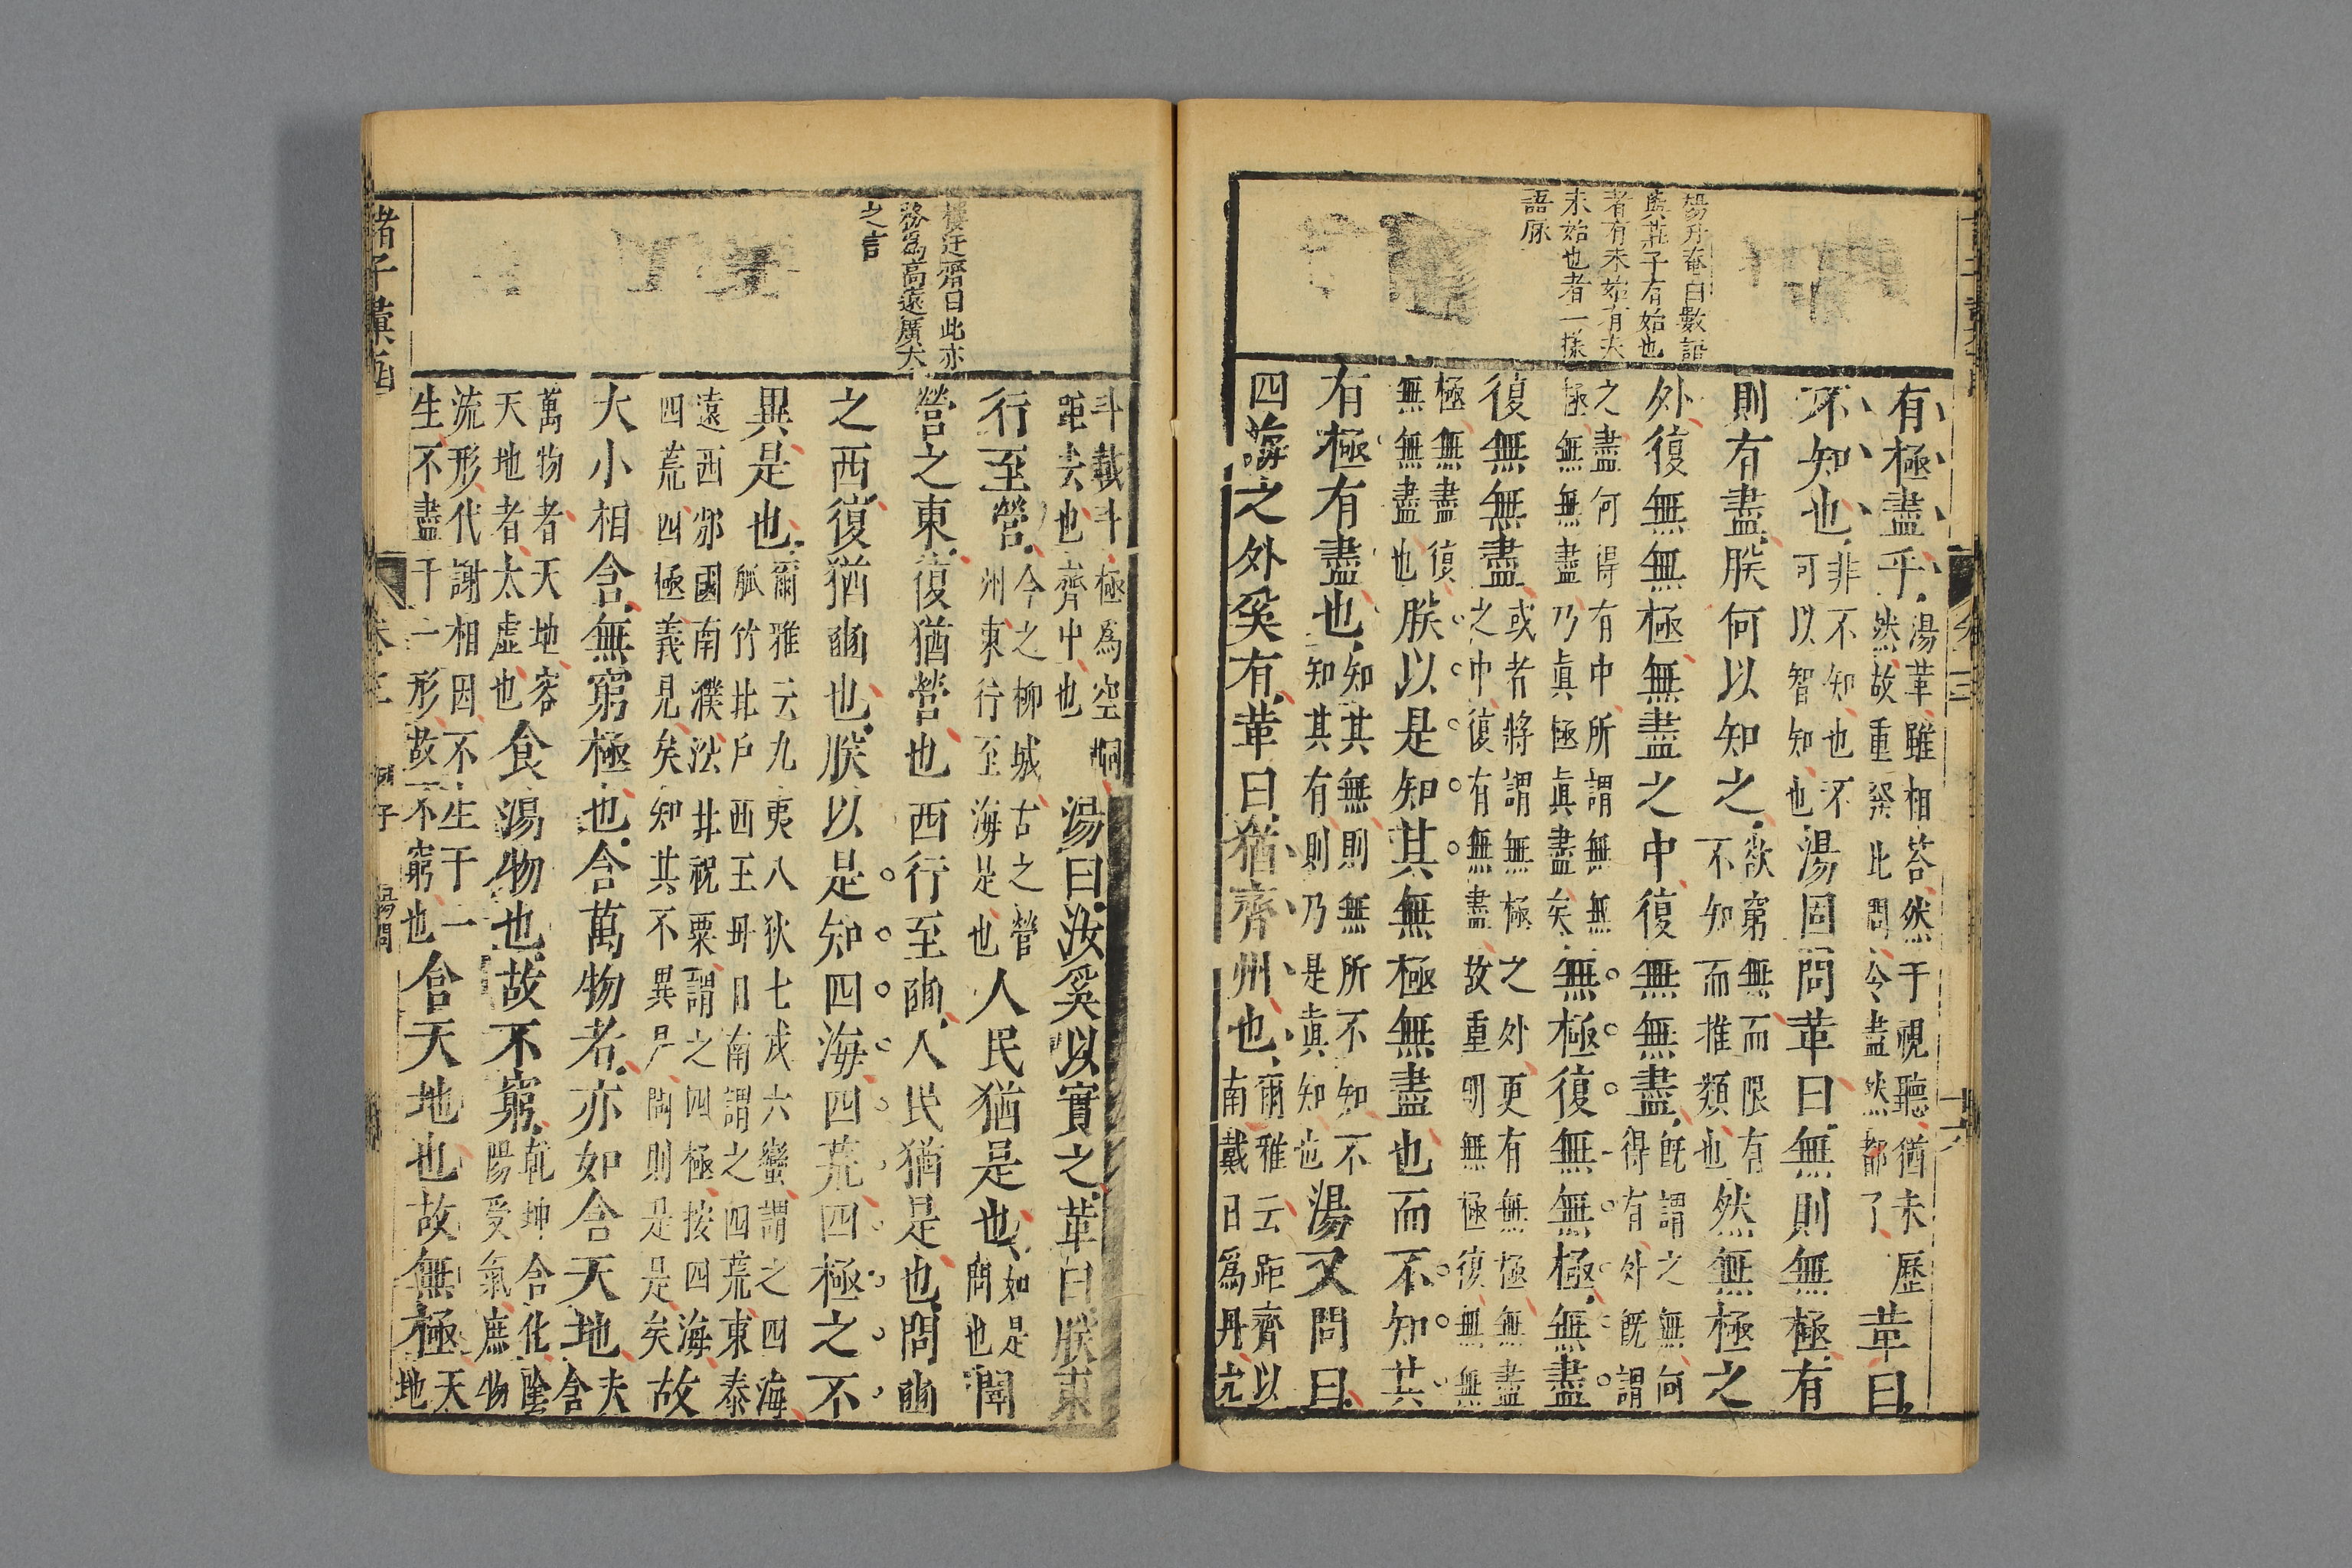 楊升菴曰數語
與莊子有始也
者有未始有夫
未始也者一樣
語脉
有極盡乎湯革雖相荅然于視聽猶未歷
然故重發此問令盡然都了革曰
不知也非不知也不
可以智知也湯固問革曰無則無極有
則有盡朕何以知之欲窮無而限有
不知而推類也然無極之
外復無無極無盡之中復無無盡既謂之無何
得有外既謂
之盡何得有中所謂無無
極無無盡乃眞極眞盡矣無極復無無極無盡
復無無盡或者將謂無極之外更有無極無盡
之中復有無盡故重明無極復無無
極無盡復
無無盡也朕以是知其無極無盡也而不知其
有極有盡也知其無則無所不知不
知其有則乃是眞知也湯又問曰
四海之外奚有革曰猶齊州也爾雅云距齊以
南戴日爲丹穴
卷三
十六
樓迂齋曰此亦
務爲高遠廣大
之言
斗戴斗極爲空峒
距去也齊中也湯曰汝奚以實之革曰朕東
行至營今之柳城古之營
州東行至海是也人民猶是也如是
間也問
營之東復猶營也西行至豳人民猶是也問豳
之西復猶豳也朕以是知四海四荒四極之不
異是也爾雅云九夷八狄七戎六蠻謂之四海
觚竹北戶西王母日南謂之四荒東泰
遠西邠國南濮泓北祝栗謂之四極按四海
四荒四極義見矣知其不異是間則是是矣故
大小相含無窮極也含萬物者亦如含天地夫
含
萬物者天地容
天地者太虛也食湯物也故不窮乾坤含化陰
陽受氣庶物
流形代謝相因不生于一
生不盡于一形故不窮也含天地也故無極天
地
諸子彙函
卷三
列子
湯問